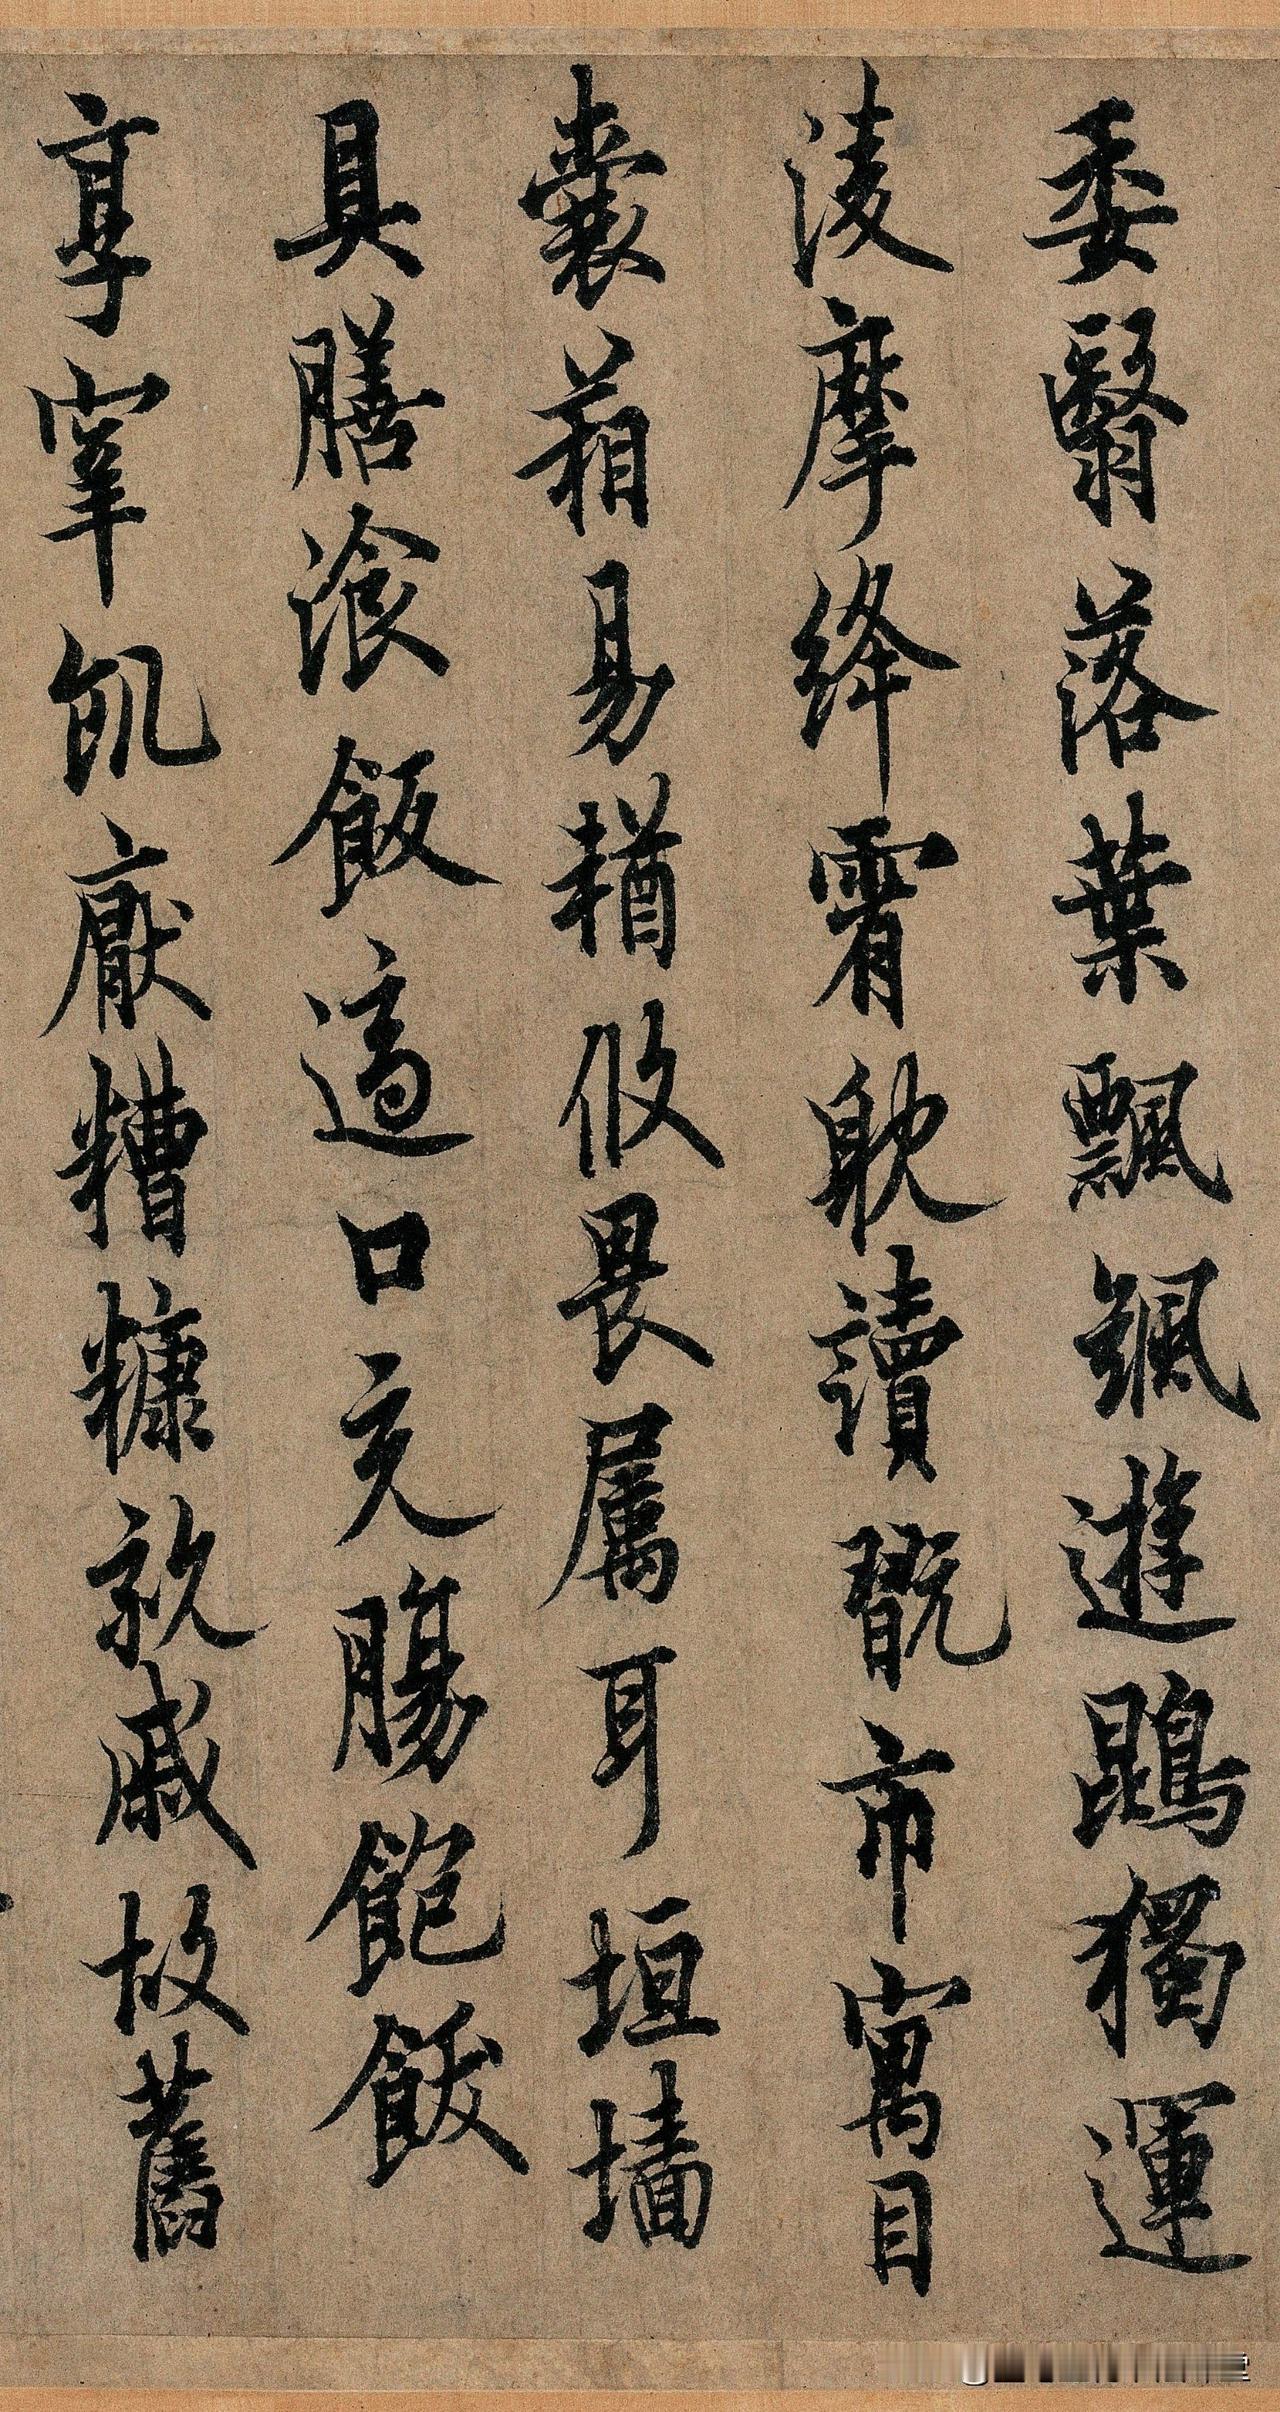 委翳落葉飄颻遊鵾獨運
淩摩絳霄耽讀翫市寓目
囊葙易輶攸畏属耳垣墙
具膳飡飯適口充腸飽飫
享宰飢厭糟糠親戚故舊